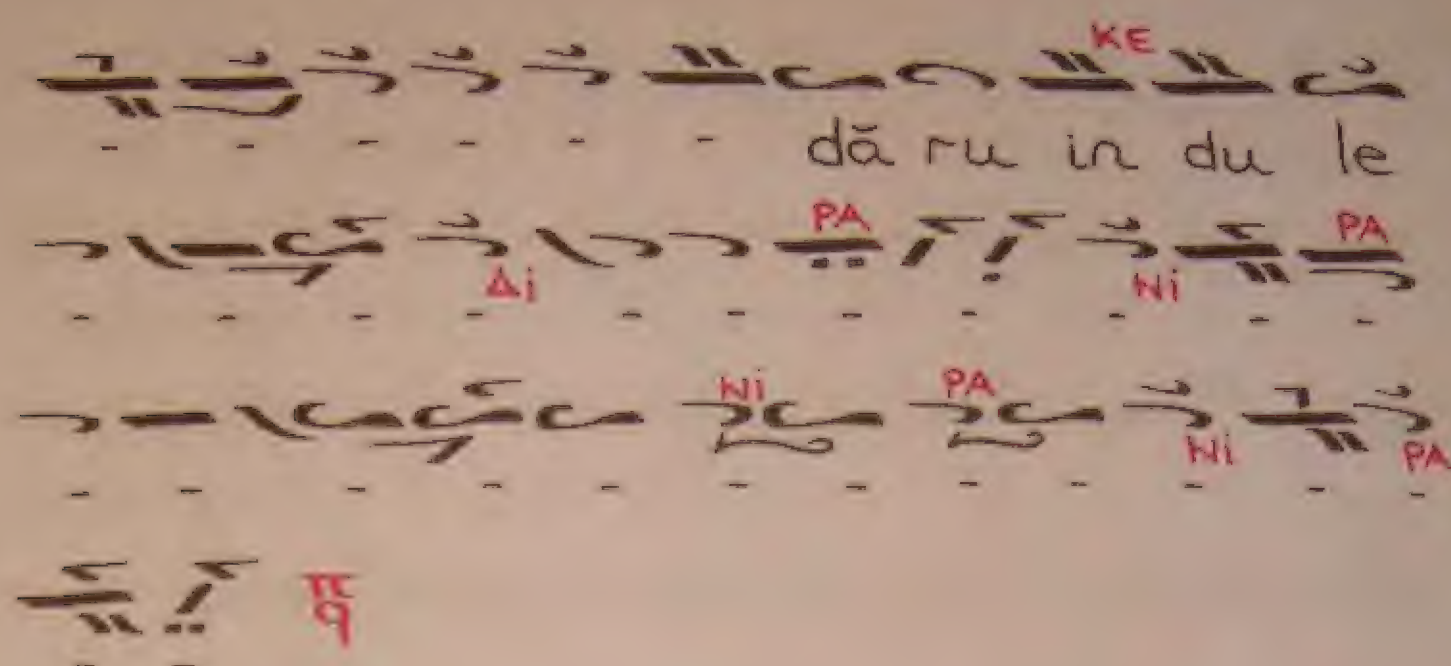 KE
- - - - - - dă ru in du le
PA PA
Δi Ni
- - - - - - - - - - -
Ni PA
Ni PA
- - - - - - - - - - - -
π
q